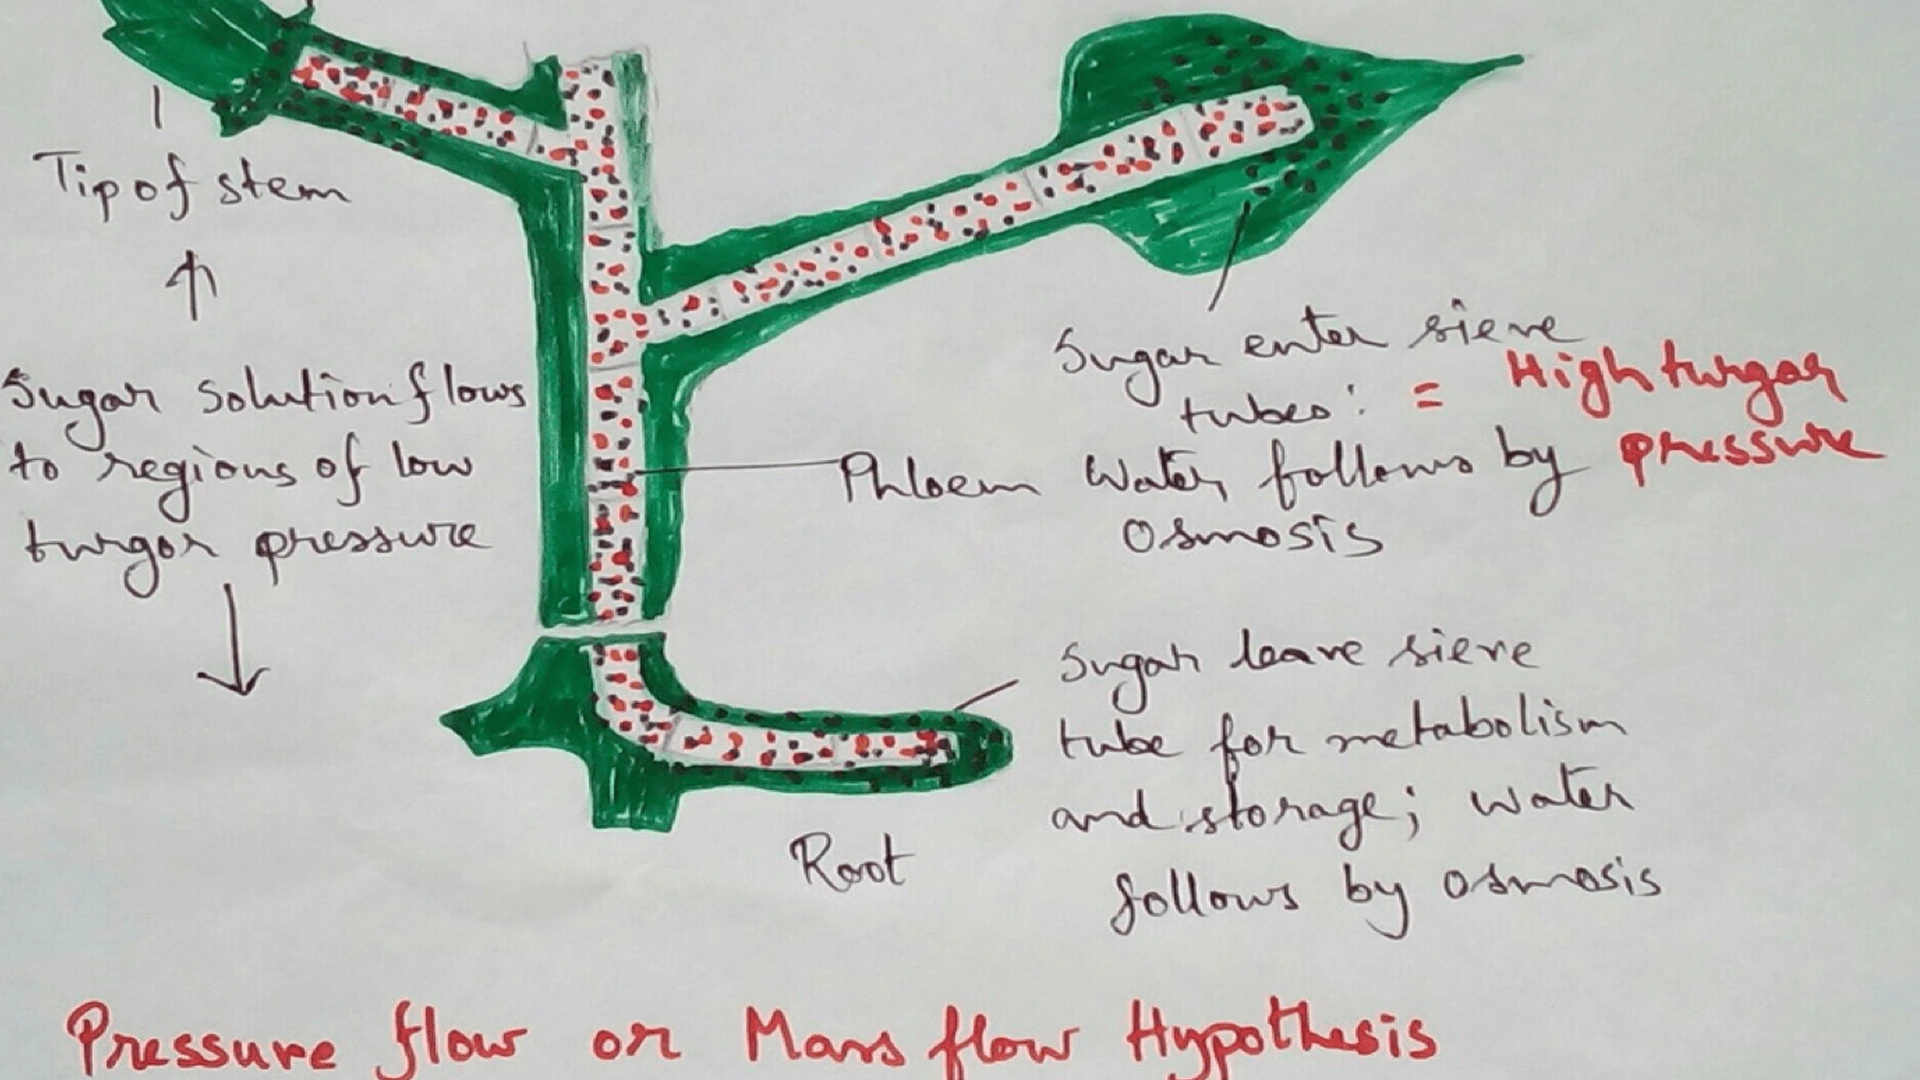 Tip of stem
Sugar solution flows
to regions of low
turgor pressure
Sugar enter sieve
tubes: = High turgor
Phloem Water follows by pressure
Osmosis
Sugar leave sieve
tube for metabolism
and storage; water
follows by osmosis
Root
Pressure flow or Mass flow Hypothesis